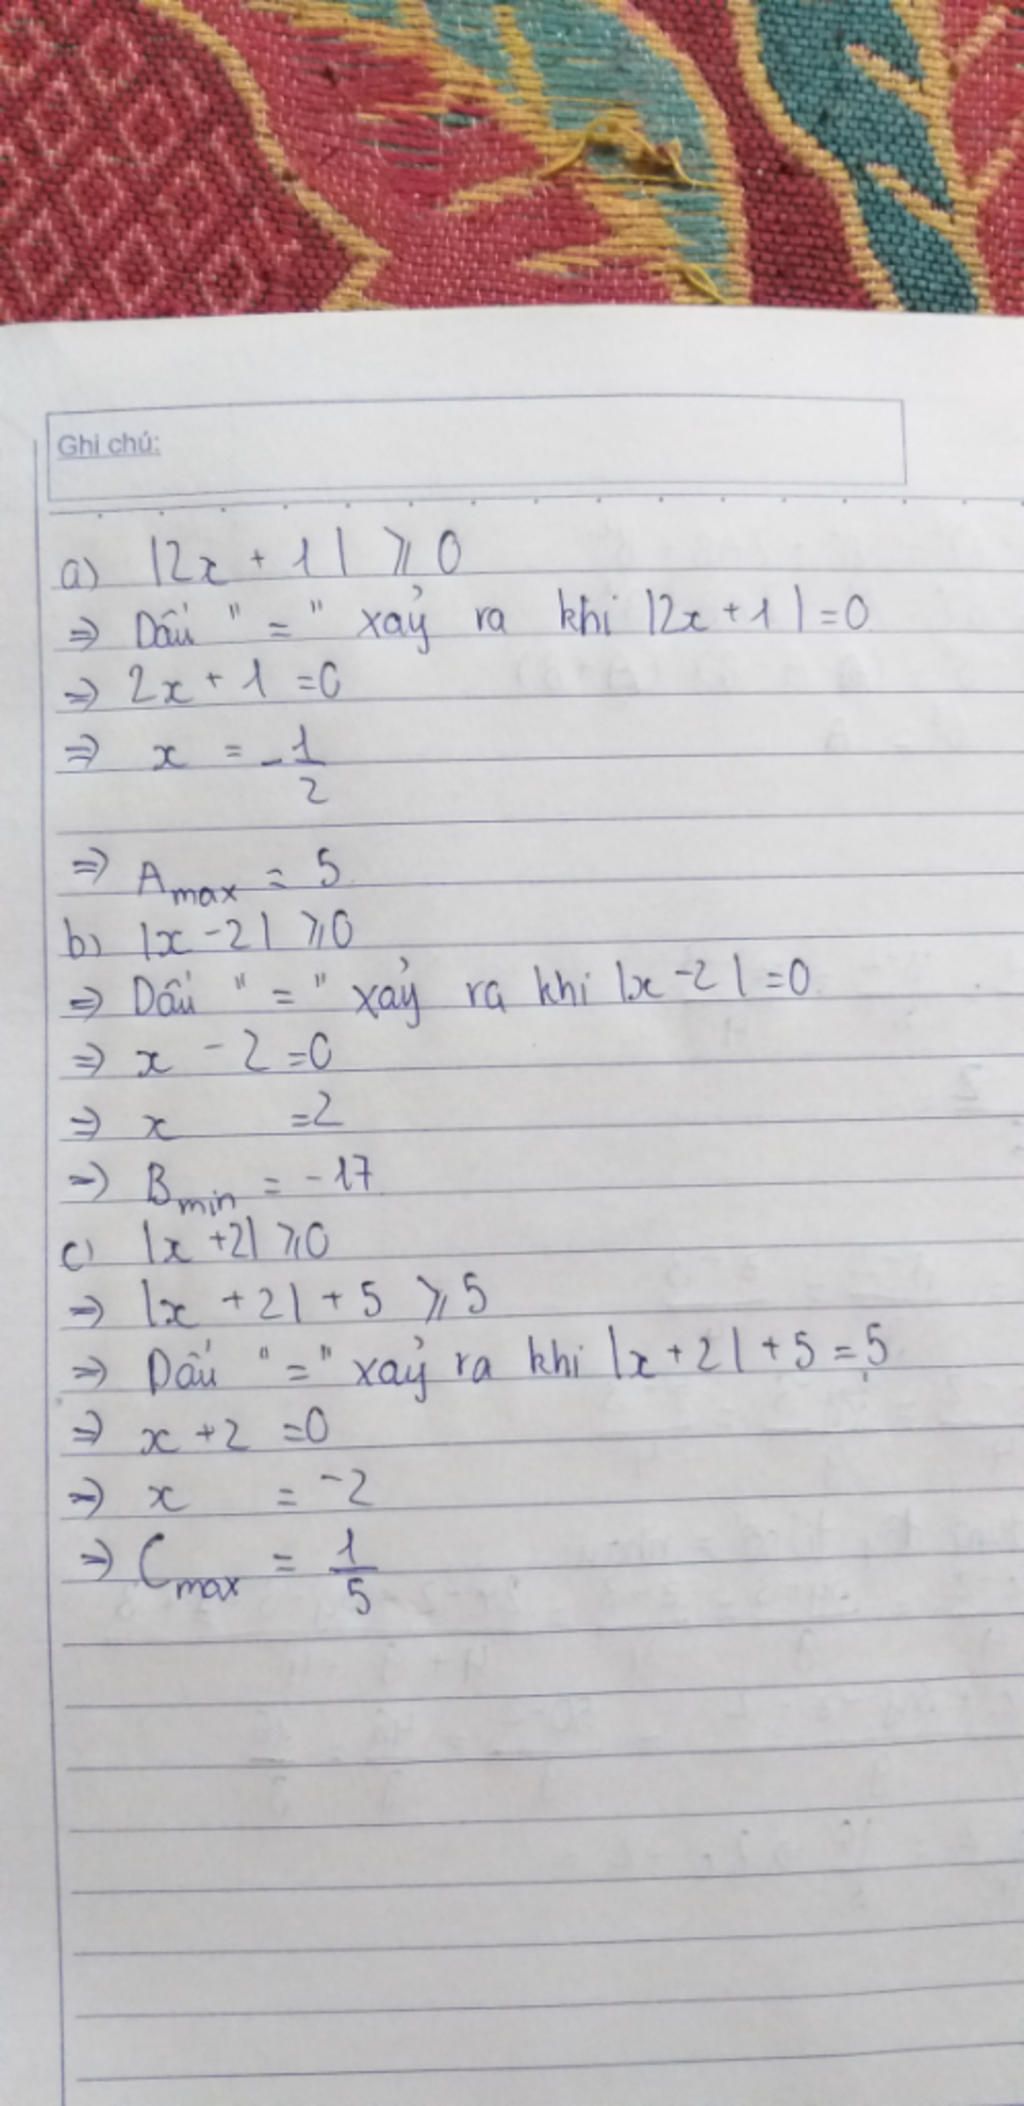 Ghi chú:
a) |2x + 1| ⩾ 0
⇒ Dấu " = " xảy ra khi |2x + 1| = 0
⇒ 2x + 1 = 0
⇒ x = -1/2
⇒ Amax = 5
b) |x - 2| ⩾ 0
⇒ Dấu " = " xảy ra khi |x - 2| = 0
⇒ x - 2 = 0
⇒ x = 2
⇒ Bmin = -17
c) |x + 2| ⩾ 0
⇒ |x + 2| + 5 ⩾ 5
⇒ Dấu " = " xảy ra khi |x + 2| + 5 = 5
⇒ x + 2 = 0
⇒ x = -2
⇒ Cmax = 1/5